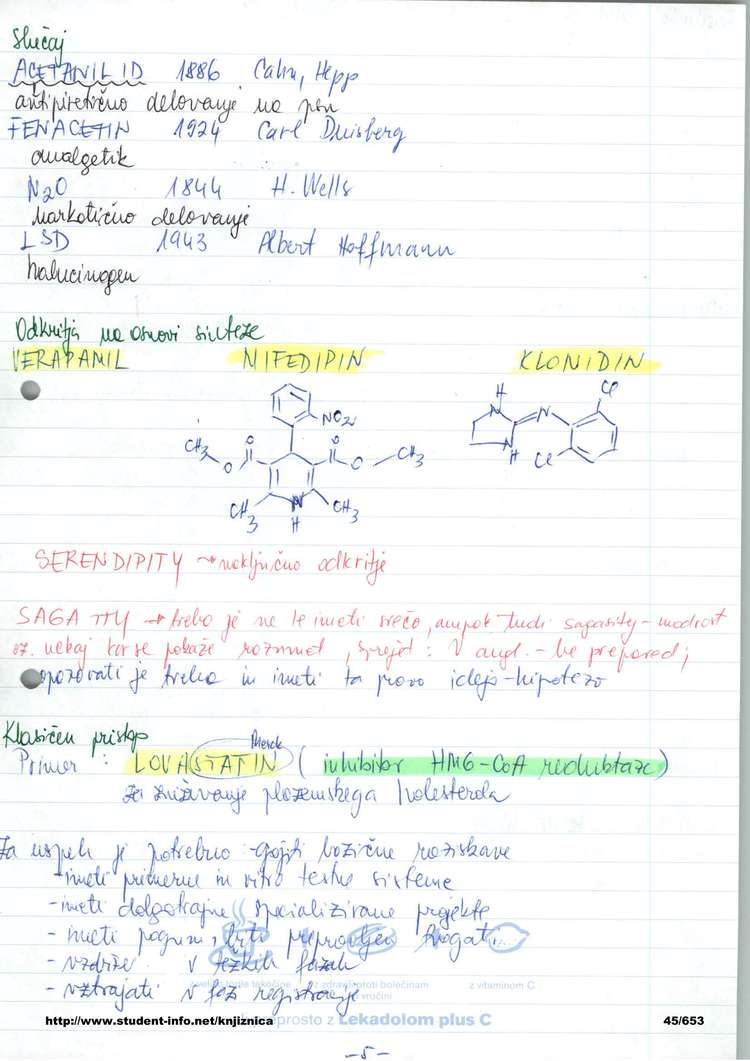 Slučaj
ACETANILID 1886 Cahn, Hepp
antipiretično delovanje na psu
FENACETIN 1924 Carl Duisberg
analgetik
N2O 1844 H. Wells
narkotično delovanje
LSD 1943 Albert Hoffmann
halucinogen
Odkritja na osnovi sinteze
VERAPAMIL NIFEDIPIN KLONIDIN
H Cl
N N
NO2
N
H Cl
CH3 O O CH3
O O
CH3 N CH3
H
SERENDIPITY → naključno odkritje
SAGATTY → treba je ne le imeti srečo, ampak tudi sagasity - modrost
oz. nekaj kar se pokaže razumet, sprejet: V angl. - be prepared;
opazovati je treba in imeti ta pravo idejo - hipotezo
Klasičen pristop
Merck
Primer: LOVASTATIN (inhibitor HMG-CoA reduktaze)
za zniževanje plazemskega holesterola
Za uspeh je potrebno - gojiti bazične raziskave
- imeti primerne in vitro testne sisteme
- imeti dolgotrajne specializirane projekte
- imeti pogum, biti pripravljen
- vzdrže v težkih fazah
- vztrajati v fazi registracije
proti bolečinam z vitaminom C
vročini
http://www.student-info.net/knjiznica prosto z Lekadolom plus C 45/653
-5-